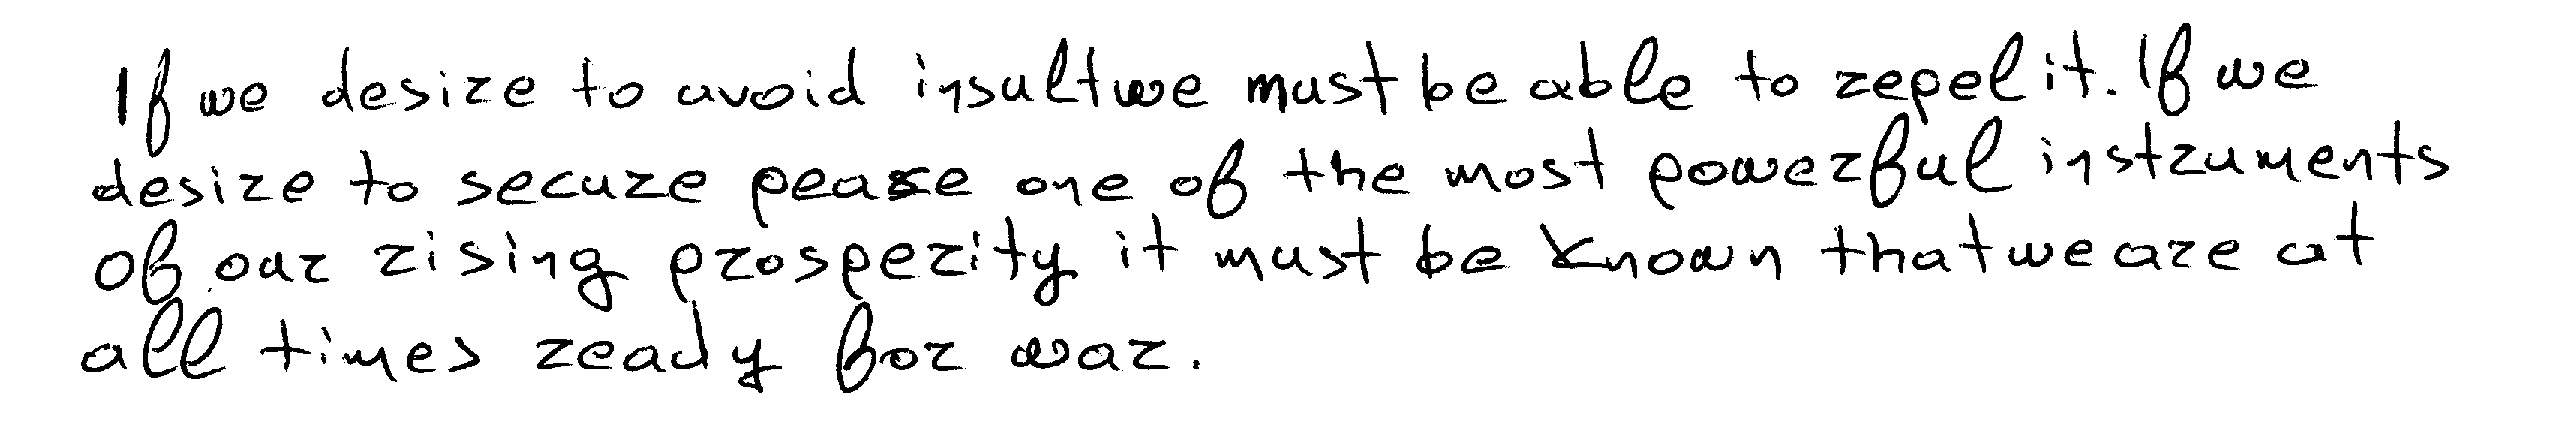 If we desire to avoid insult we must be able to repel it. If we
desire to secure pease one of the most powerful instruments
of our rising prosperity it must be known that we are at
all times ready for war.